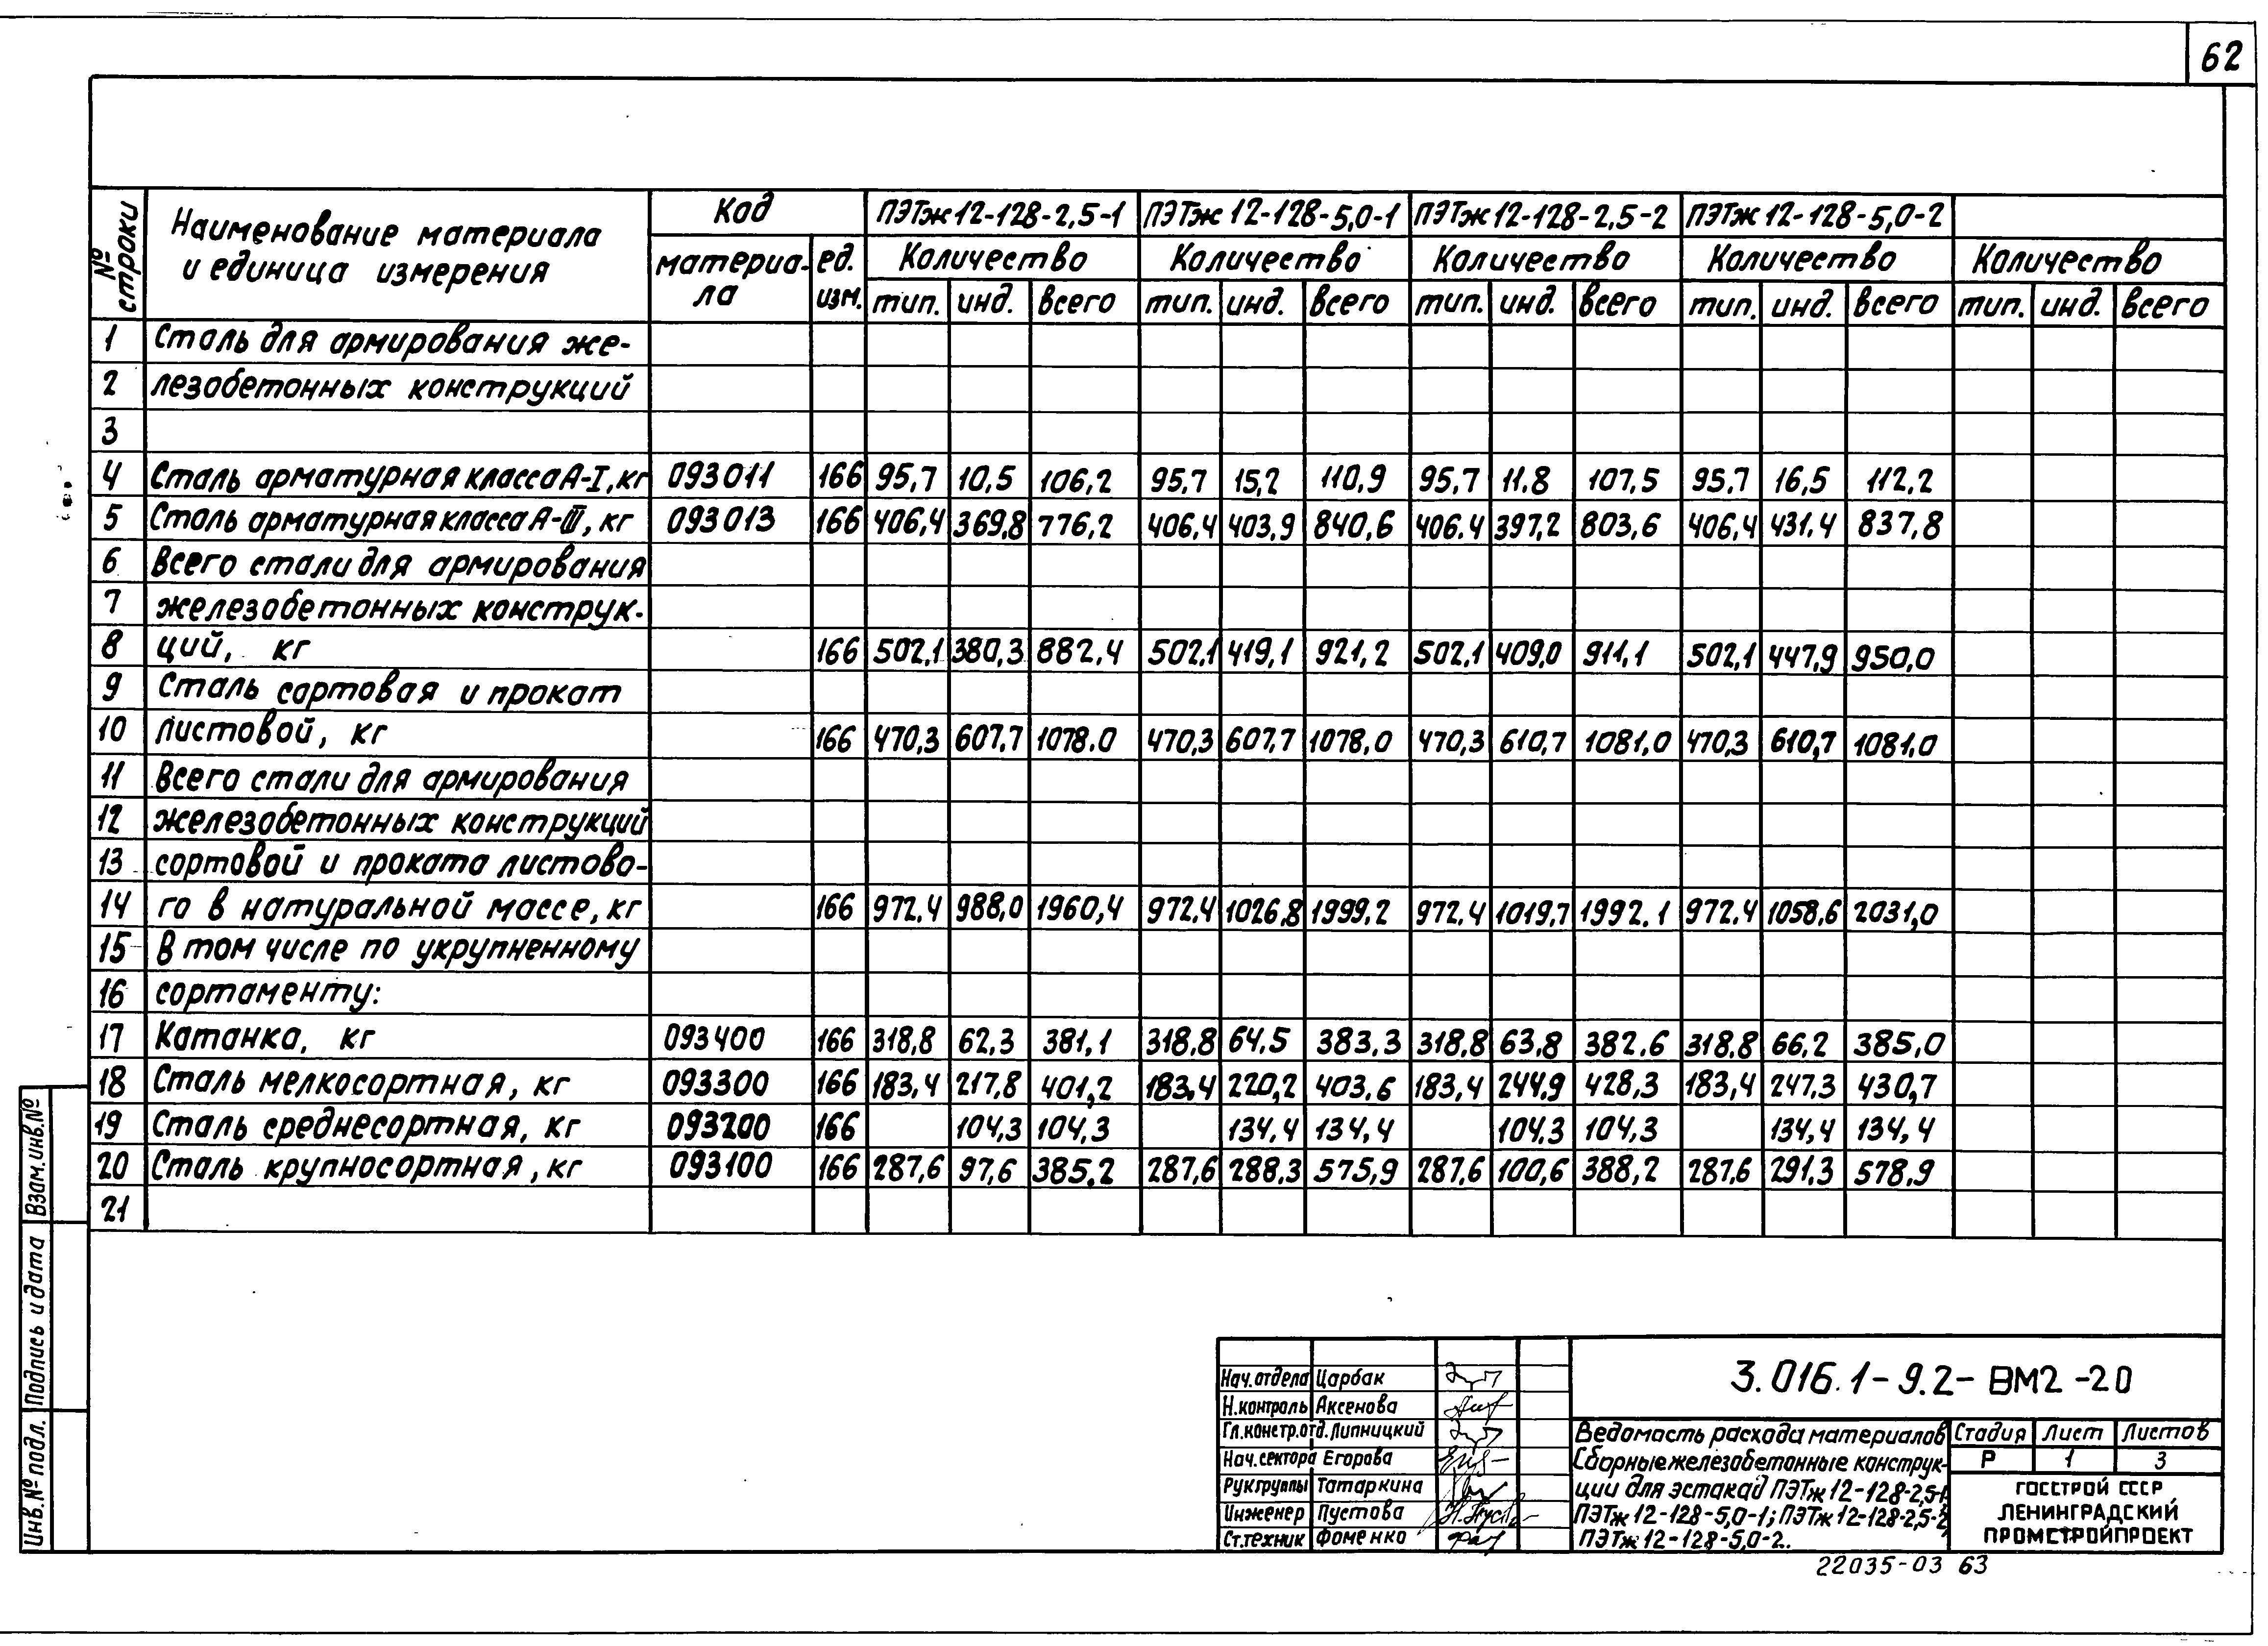 62
№ строки Наименование материала и единица измерения Код ПЭТж 12-128-2,5-1 ПЭТж 12-128-5,0-1 ПЭТж 12-128-2,5-2 ПЭТж 12-128-5,0-2
материа- ла ед. изм. Количество Количество Количество Количество Количество
тип. инд. всего тип. инд. всего тип. инд. всего тип. инд. всего тип. инд. всего
1 Сталь для армирования же-
2 лезобетонных конструкций
3
4 Сталь арматурная класса А-I, кг 093011 166 95,7 10,5 106,2 95,7 15,2 110,9 95,7 11.8 107,5 95,7 16,5 112,2
5 Сталь арматурная класса А-III, кг 093013 166 406,4 369,8 776,2 406,4 403,9 840,6 406.4 397,2 803,6 406,4 431.4 837,8
6 Всего стали для армирования
7 железобетонных конструк-
8 ций, кг 166 502,1 380,3 882,4 502,1 419,1 921,2 502,1 409,0 911,1 502,1 447,9 950,0
9 Сталь сортовая и прокат
10 листовой, кг 166 470,3 607,7 1078.0 470,3 607,7 1078,0 470,3 610,7 1081,0 470,3 610,7 1081,0
11 Всего стали для армирования
12 железобетонных конструкций
13 сортовой и проката листово-
14 го в натуральной массе, кг 166 972.4 988,0 1960,4 972,4 1026,8 1999,2 972.4 1019,7 1992.1 972.4 1058,6 2031,0
15 В том числе по укрупненному
16 сортаменту:
17 Катанка, кг 093400 166 318,8 62,3 381,1 318,8 64,5 383,3 318,8 63,8 382.6 318,8 66,2 385,0
18 Сталь мелкосортная, кг 093300 166 183,4 217,8 401,2 183,4 220,2 403,6 183,4 244,9 428,3 183,4 247,3 430,7
19 Сталь среднесортная, кг 093200 166 104,3 104,3 134,4 134,4 104,3 104,3 134,4 134,4
20 Сталь крупносортная, кг 093100 166 287,6 97,6 385,2 287,6 288,3 575,9 287,6 100,6 388,2 287,6 291,3 578,9
21
Взам.инв.№
Подпись и дата
Инв.№ подл.
Нач.отдела Царбак
Н.контроль Аксенова
Гл.констр.отд. Липницкий
Нач.сектора Егорова
Рук.группы Татаркина
Инженер Пустова
Ст.техник Фоменко
3.016.1-9.2-ВМ2-20
Ведомость расхода материалов
Сборные железобетонные конструк-
ции для эстакад ПЭТж 12-128-2,5-1
ПЭТж 12-128-5,0-1; ПЭТж 12-128-2,5-2,
ПЭТж 12-128-5,0-2.
Стадия Лист Листов
Р 1 3
ГОССТРОЙ СССР
ЛЕНИНГРАДСКИЙ
ПРОМСТРОЙПРОЕКТ
22035-03 63